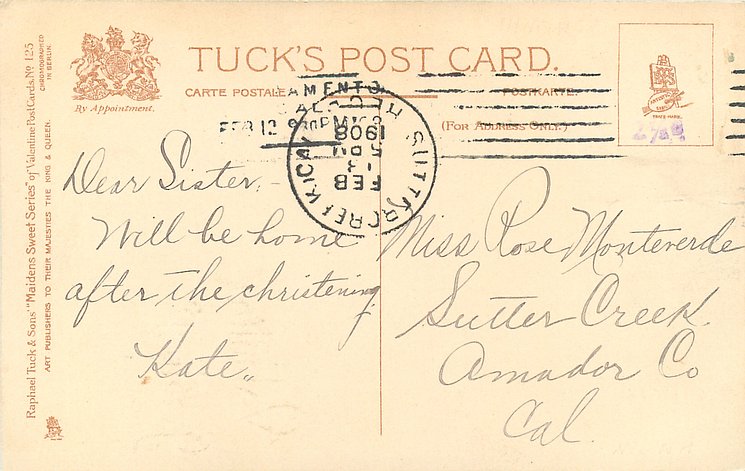 TUCK'S POST CARD.
CARTE POSTALE
POSTKARTE.
(FOR ADDRESS ONLY.)
By Appointment.
Raphael Tuck & Sons' "Maidens Sweet Series" of Valentine Post Cards. No 125
CHROMOGRAPHED IN BERLIN.
ART PUBLISHERS TO THEIR MAJESTIES THE KING & QUEEN.
TRADE MARK.
AMENTO
CAL
FEB 12 9 30PM
SUTTER CREEK CAL
FEB
13
5 PM
1908
Dear Sister,-
Will be home
after the christening.
Kate"
Miss Rose Monteverde
Sutter Creek.
Amador Co
Cal.